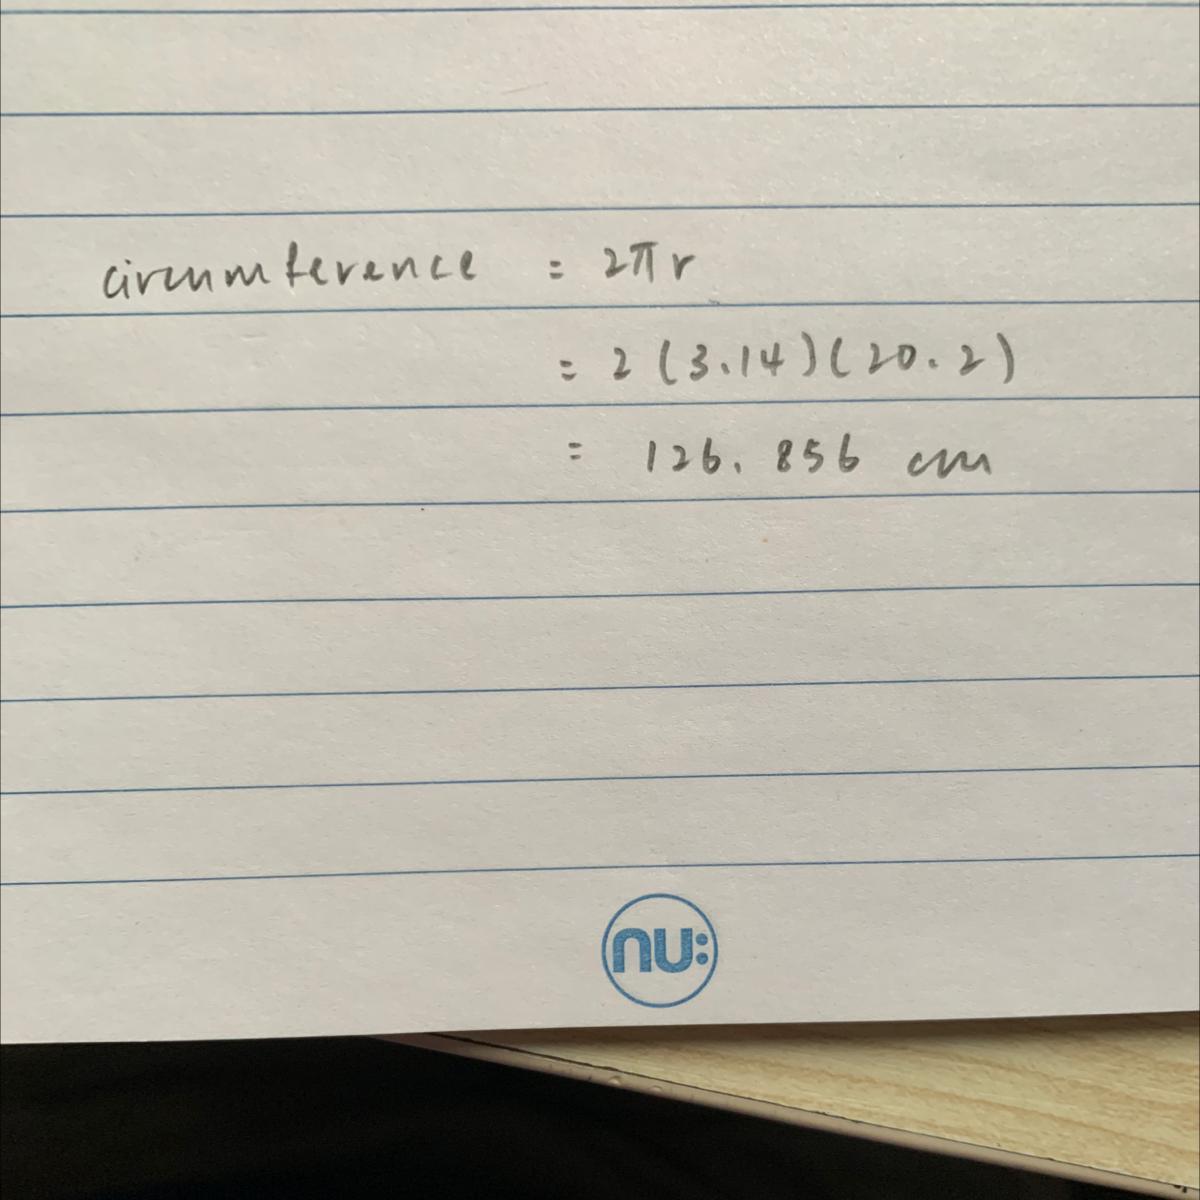 circumference = 2πr
= 2(3.14)(20.2)
= 126.856 cm
nu: